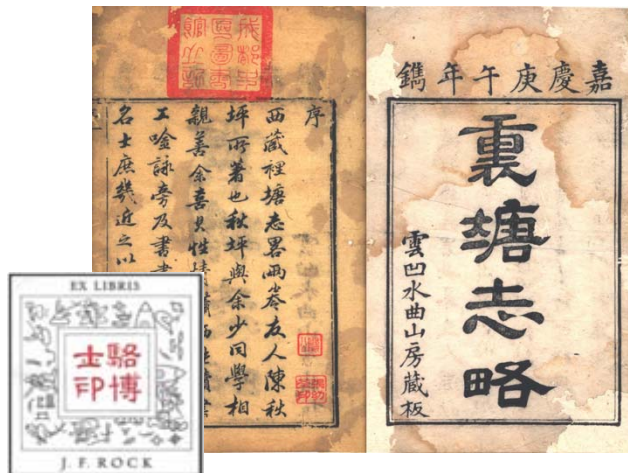 嘉慶庚午年鐫
裏塘志略
雲凹水曲山房藏板
序
西藏裡塘志畧兩友人陳秋
坪所著也秋坪與余少同學相
親善余喜其性情
工唫詠旁及書
名士庶幾近之以
EX LIBRIS
駱博
士印
J. F. ROCK